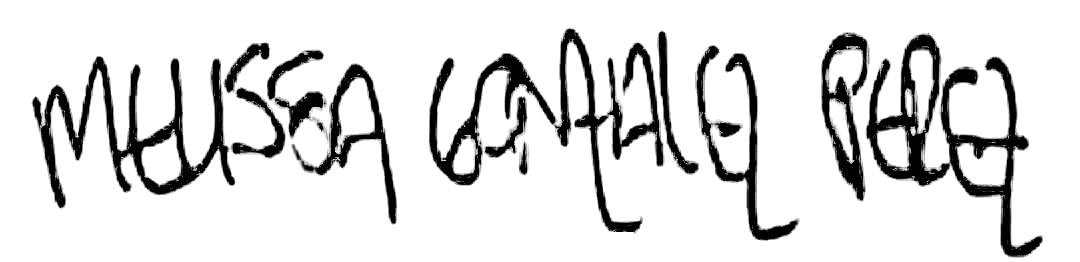 MELISSA GONZALEZ PEREZ